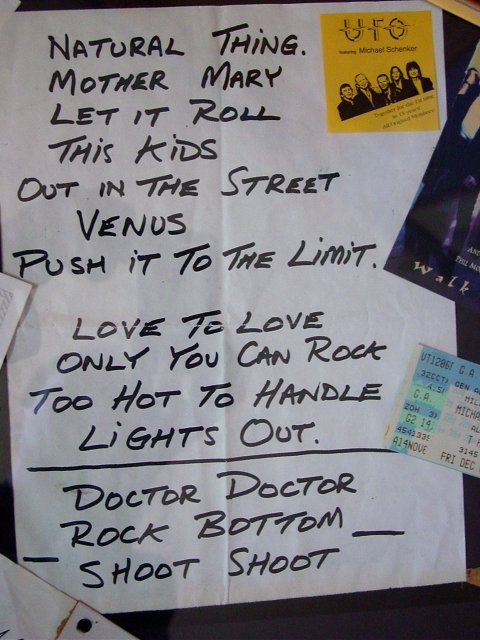 NATURAL THING.
MOTHER MARY
LET IT ROLL
THIS KIDS
OUT IN THE STREET
VENUS
PUSH IT TO THE LIMIT.
LOVE TO LOVE
ONLY YOU CAN ROCK
TOO HOT TO HANDLE
LIGHTS OUT.
DOCTOR DOCTOR
ROCK BOTTOM
SHOOT SHOOT
UFO
featuring Michael Schenker
Together for the 1st time
in 15 years!
All Original Members!
PHIL MO
Walk
G.A.
GEN A
G.A.
MIL
MICHA
A14NOVE
FRI DEC